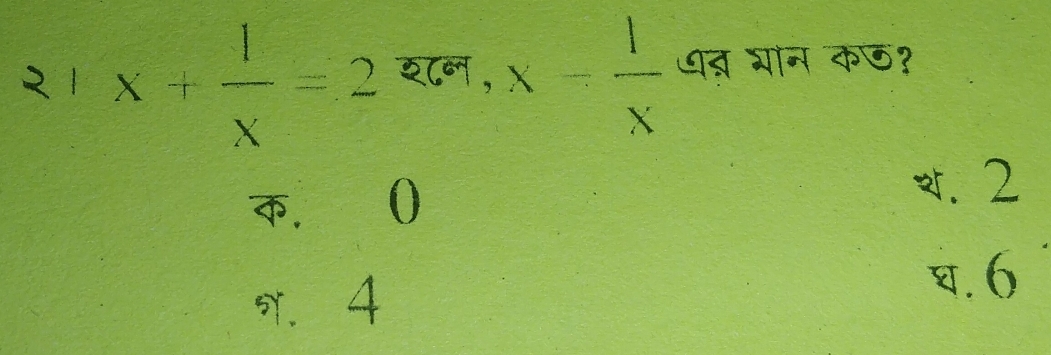 ২। x + 1/x = 2 হলে, x - 1/x এর মান কত?
ক. 0 খ. 2
গ. 4 ঘ. 6